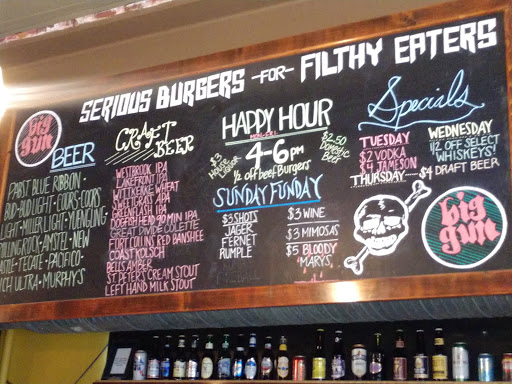 SERIOUS BURGERS -FOR- FILTHY EATERS
big gun
BEER
PABST BLUE RIBBON ·
BUD · BUD LIGHT · COORS · COORS
LIGHT · MILLER LIGHT · YUENGLING
ROLLING ROCK · AMSTEL · NEW
TECATE · PACIFICO ·
ULTRA · MURPHYS
CRAFT BEER
WESTBROOK IPA
WHEAT
GREEN FLASH IPA
DOGFISH HEAD 90 MIN IPA
GREAT DIVIDE COLETTE
FORT COLLINS RED BANSHEE
COAST KOLSCH
BELLS AMBER
ST. PETERS CREAM STOUT
LEFT HAND MILK STOUT
HAPPY HOUR
4-6 pm
1/2 off beef Burgers
$3 HOUSE LIQUOR
$2.50 DOMESTIC BEER
SUNDAY FUNDAY
$3 SHOTS
JAGER
FERNET
RUMPLE
$3 WINE
$3 MIMOSAS
$5 BLOODY
MARYS
Specials
TUESDAY
$2 VODKA
$4 JAMESON
WEDNESDAY
1/2 OFF SELECT
WHISKEYS!
THURSDAY
$4 DRAFT BEER
big gun